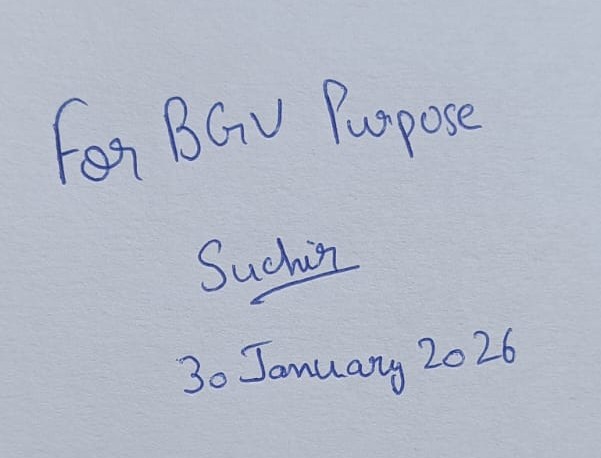 For BGV Purpose
Suchir
30 January 2026